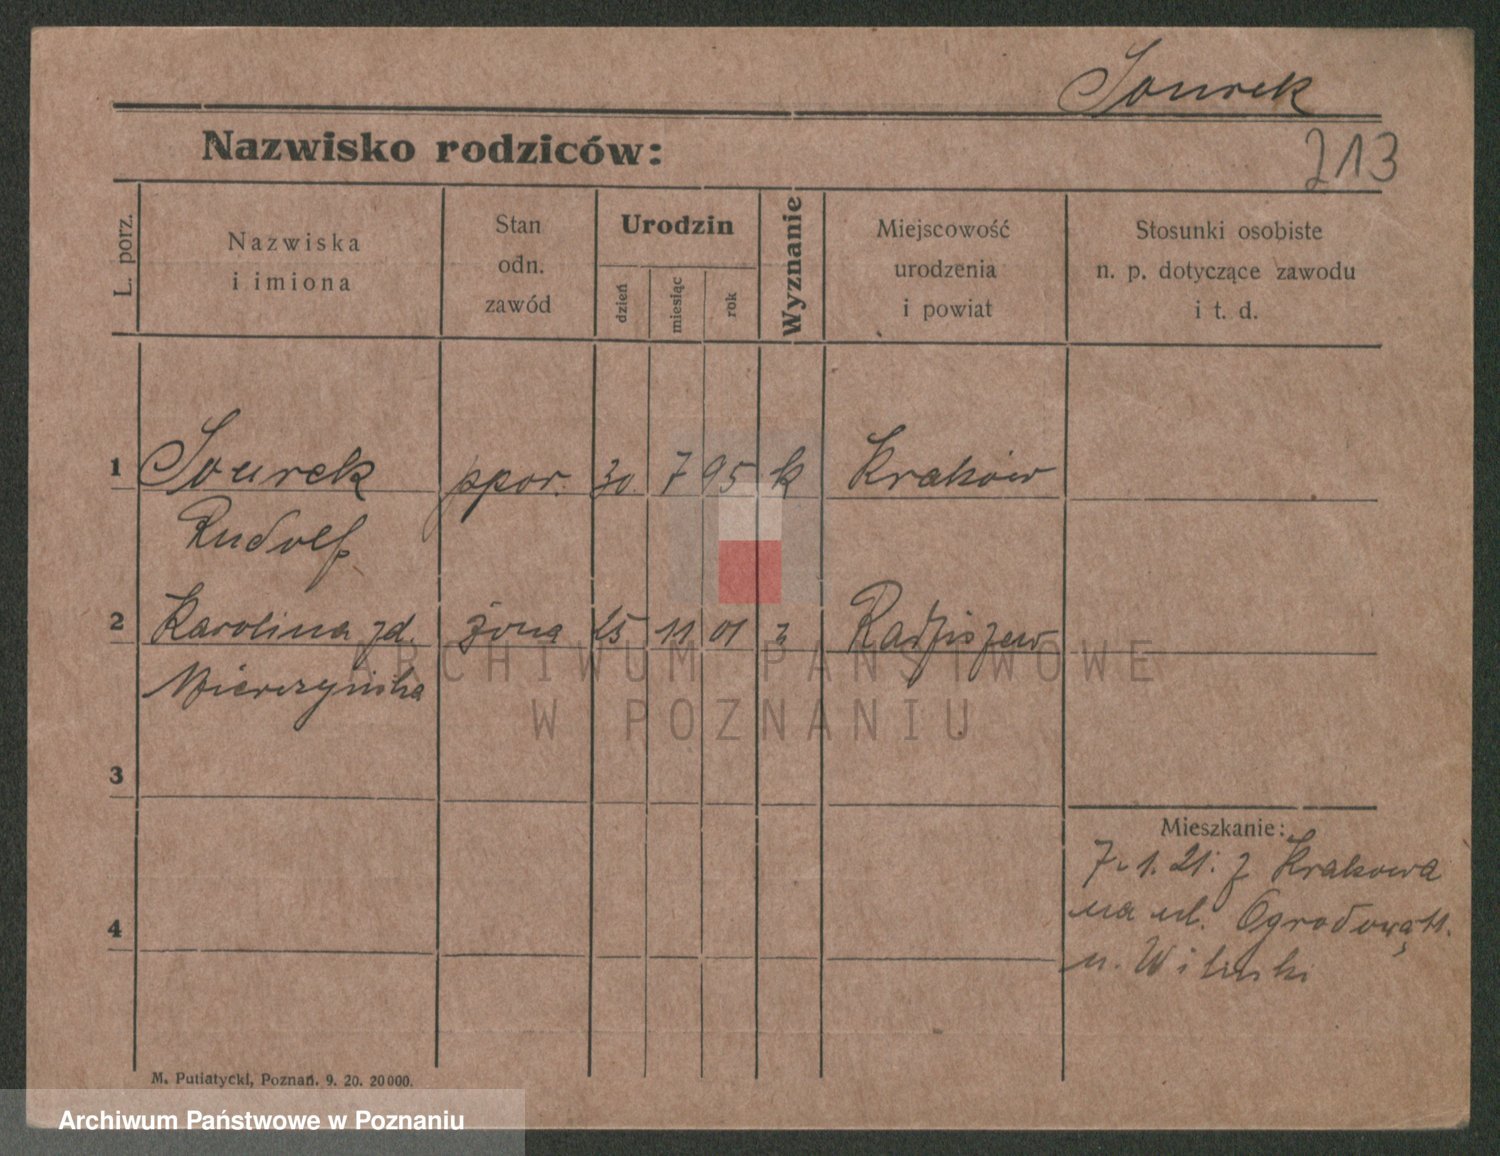 Sourek
213
Nazwisko rodziców:
L. porz.
Nazwiska
i imiona
Stan
odn.
zawód
Urodzin
dzień
miesiąc
rok
Wyznanie
Miejscowość
urodzenia
i powiat
Stosunki osobiste
n. p. dotyczące zawodu
i t. d.
1 Sourek ppor. 30 7 95 k Kraków
Rudolf
2 Karolina zd. żona 25 11 01 Radziszew
Mierczyńska
3
Mieszkanie:
7. 1. 21. z Krakowa
na ul. Ogrodową 11.
4
u. Wiluski
M. Putiatycki, Poznań. 9. 20. 20 000.
ARCHIWUM PAŃSTWOWE
W POZNANIU
Archiwum Państwowe w Poznaniu